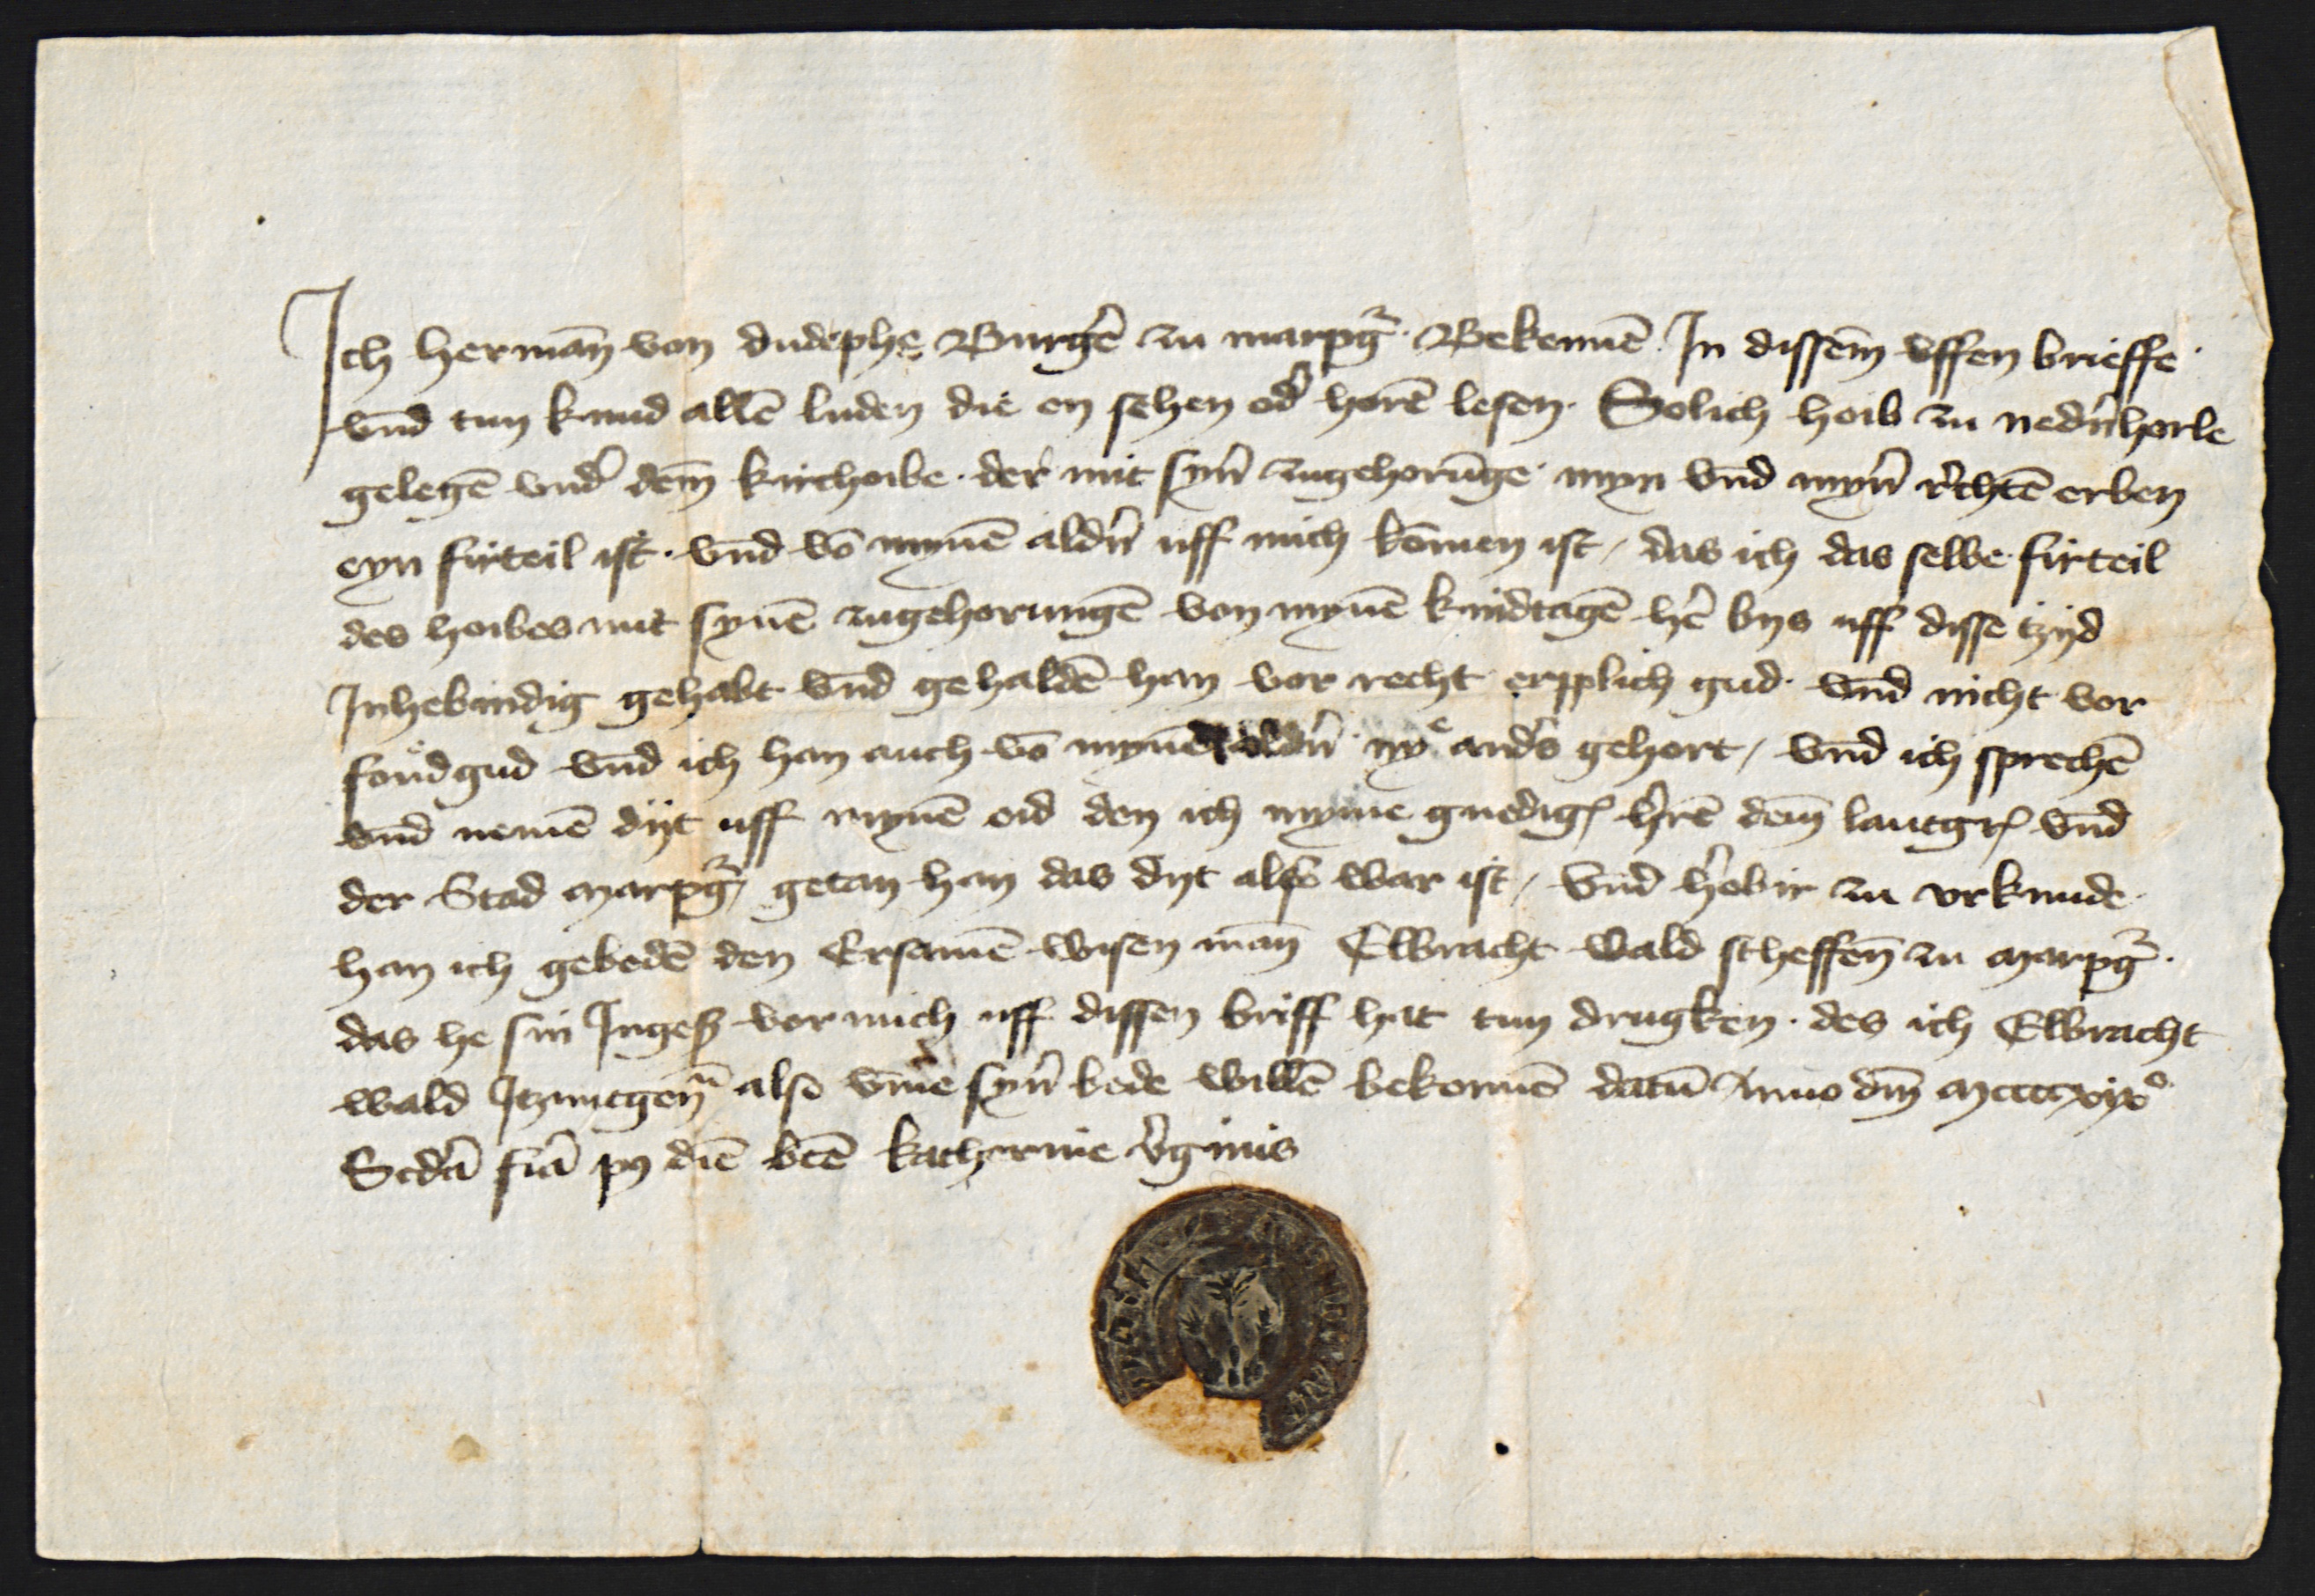 Ich hermān von dudephe Burgꝰē zu marpgꝰ. Bekennē In dissem̄ uffen brieffe.
vnd tun kund allē luden die en sehen odꝰ horē lesen. Solich hoib zu nedꝰnhorle
gelegē vndꝰ dem̄ kirchoibe. der mit synꝰ zugehorūge myn vnd mynꝰ rꝰchtē erben
eyn firteil ist. vnd vō mynē aldꝰn uff mich kōmen ist, das ich das selbe firteil
des hoibes mit synē zugehorungē von mynē kindtagē hꝰ bys uff disse tzijd
Inhebindig gehabt vnd gehaldē han vor recht erpplich gud. vnd nicht vor
gud vnd ich han auch vō mynē aldꝰn nye andꝰs gehort, vnd ich sprechē
vnd nemē dijt uff mynē eid den ich myme gnedigꝭ hꝰrē dem̄ lantgrꝭ vnd
der Stad marpgꝰ, getan han das dijt also war ist, vnd hꝰobir zu vrkunde.
han ich gebedē den Ersamē wisen mān Elbracht wald scheffen̄ zu marpgꝰ.
das he sin Ingeß vor mich uff dissen briff hat tun drugken. des ich Elbracht
wald Itzuntgenn̄ also vm̄e synꝰ bede willē bekennē datū Anno dn̄i mccccxixº
Scdā fiā p9 diē btē katherine vꝰginis